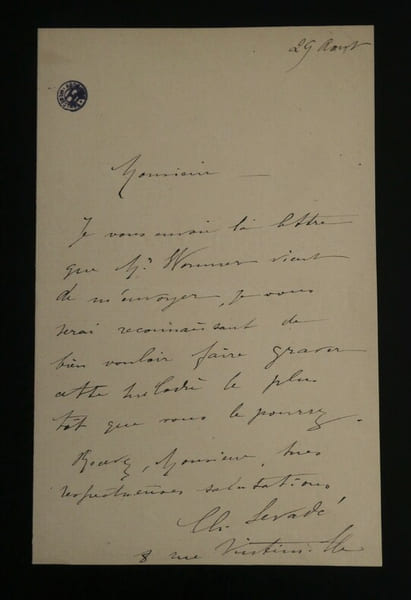 29 Août
Monsieur
Je vous envoie la lettre
que Mr. Wormser vient
de m'envoyer, je vous
serai reconnaissant de
bien vouloir faire graver
cette mélodie le plus
tôt que vous le pourrez.
Recevez, Monsieur, mes
respectueuses salutations
Ch. Levadé
8 rue Vintimille